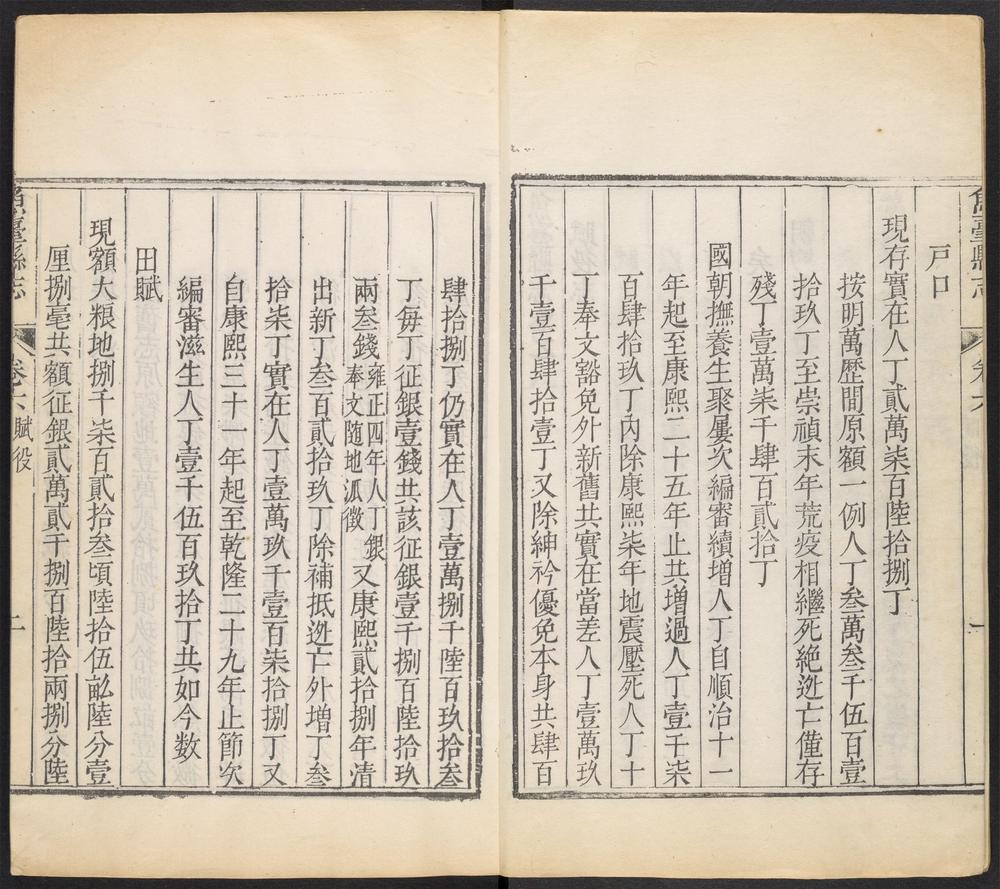 魚臺縣志
卷六
戶口
現存實在人丁貳萬柒百陸拾捌丁
按明萬歷間原額一例人丁叁萬叁千伍百壹
拾玖丁至崇禎末年荒疫相繼死絶迯亡僅存
殘丁壹萬柒千肆百貳拾丁
國朝撫養生聚屢次編審續增人丁自順治十一
年起至康熙二十五年止共增過人丁壹千柒
百肆拾玖丁內除康熙柒年地震壓死人丁十
丁奉文豁免外新舊共實在當差人丁壹萬玖
千壹百肆拾壹丁又除紳衿優免本身共肆百
肆拾捌丁仍實在人丁壹萬捌千陸百玖拾叁
丁每丁征銀壹錢共該征銀壹千捌百陸拾玖
兩叁錢雍正四年人丁銀奉文随地泒徵又康熙貳拾捌年清
出新丁叁百貳拾玖丁除補抵迯亡外增丁叁
拾柒丁實在人丁壹萬玖千壹百柒拾捌丁又
自康熙三十一年起至乾隆二十九年止節次
編審滋生人丁壹千伍百玖拾丁共如今数
田賦
現額大粮地捌千柒百貳拾叁頃陸拾伍畝陸分壹
厘捌毫共額征銀貳萬貳千捌百陸拾兩捌分陸
魚臺縣志
卷六
賦役
二